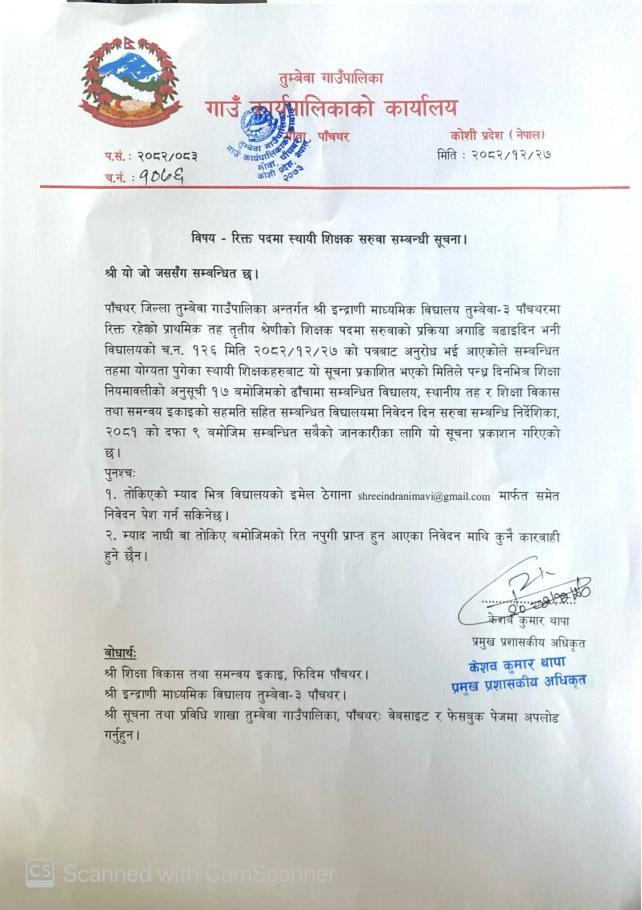 तुम्बेवा गाउँपालिका
गाउँ कार्यपालिकाको कार्यालय
मौवा, पाँचथर
कोशी प्रदेश ( नेपाल)
प.सं. : २०८२/०८३
मिति : २०८२/१२/२७
च.नं. : १०७६
विषय - रिक्त पदमा स्थायी शिक्षक सरुवा सम्बन्धी सूचना।
श्री यो जो जससँग सम्बन्धित छ।
पाँचथर जिल्ला तुम्बेवा गाउँपालिका अन्तर्गत श्री इन्द्राणी माध्यमिक विद्यालय तुम्बेवा-३ पाँचथरमा
रिक्त रहेको प्राथमिक तह तृतीय श्रेणीको शिक्षक पदमा सरुवाको प्रक्रिया अगाडि बढाइदिन भनी
विद्यालयको च.न. १२६ मिति २०८२/१२/२७ को पत्रबाट अनुरोध भई आएकोले सम्बन्धित
तहमा योग्यता पुगेका स्थायी शिक्षकहरुबाट यो सूचना प्रकाशित भएको मितिले पन्ध्र दिनभित्र शिक्षा
नियमावलीको अनुसूची १७ बमोजिमको ढाँचामा सम्बन्धित विद्यालय, स्थानीय तह र शिक्षा विकास
तथा समन्वय इकाइको सहमति सहित सम्बन्धित विद्यालयमा निवेदन दिन सरुवा सम्बन्धि निर्देशिका,
२०८१ को दफा ९ बमोजिम सम्बन्धित सबैको जानकारीका लागि यो सूचना प्रकाशन गरिएको
छ।
पुनश्चः
१. तोकिएको म्याद भित्र विद्यालयको इमेल ठेगाना shreeindranimavi@gmail.com मार्फत समेत
निवेदन पेश गर्न सकिनेछ।
२. म्याद नाघी वा तोकिए बमोजिमको रित नपुगी प्राप्त हुन आएका निवेदन माथि कुनै कारवाही
हुने छैन।
केशब कुमार थापा
प्रमुख प्रशासकीय अधिकृत
केशव कुमार थापा
प्रमुख प्रशासकीय अधिकृत
बोधार्थः
श्री शिक्षा विकास तथा समन्वय इकाइ, फिदिम पाँचथर।
श्री इन्द्राणी माध्यमिक विद्यालय तुम्बेवा-३ पाँचथर।
श्री सूचना तथा प्रविधि शाखा तुम्बेवा गाउँपालिका, पाँचथरः वेबसाइट र फेसबुक पेजमा अपलोड
गर्नुहुन।
CS Scanned with CamScanner